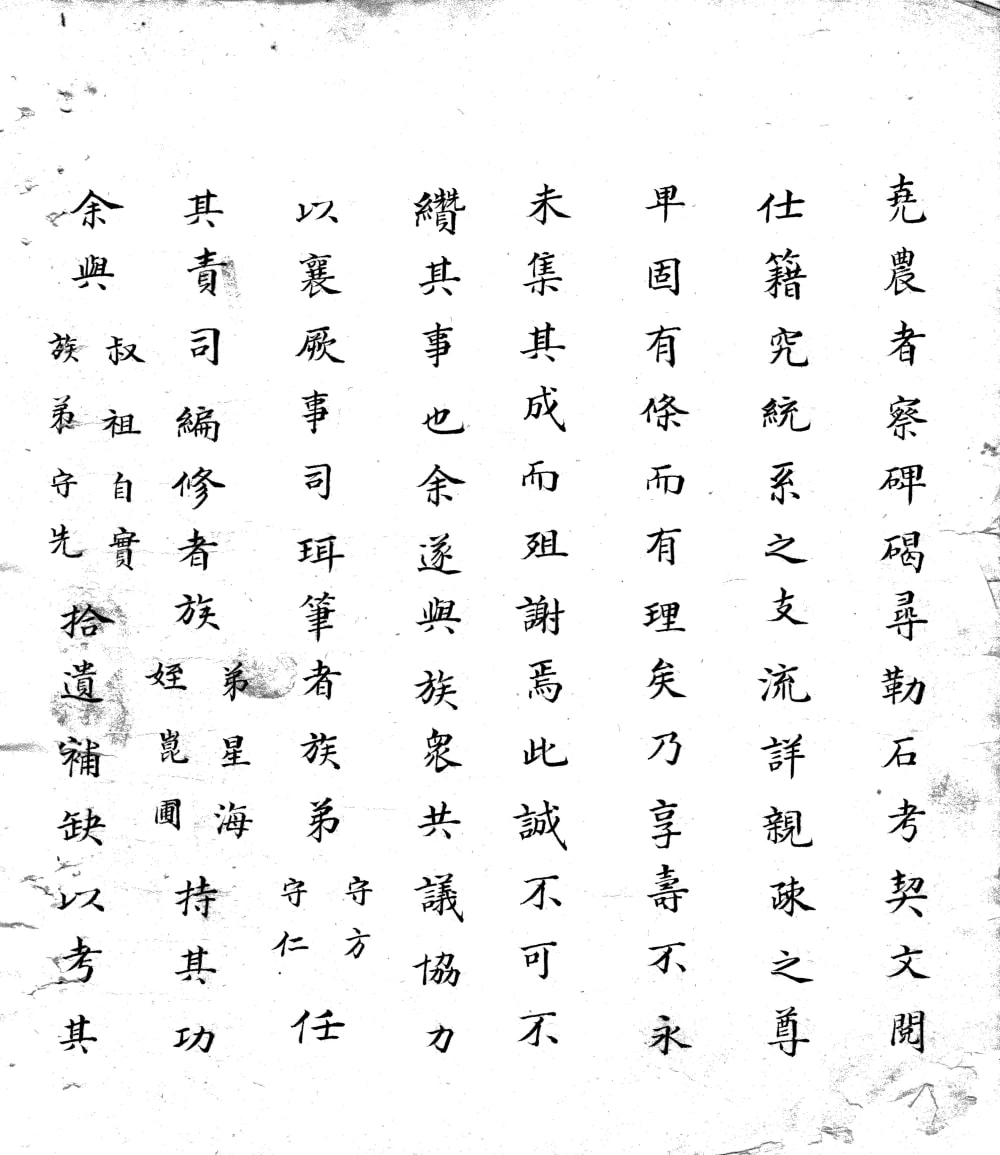 尭農者察碑碣尋勒石考契文閱
仕籍究統系之支流詳親疎之尊
卑固有條而有理矣乃享壽不永
未集其成而殂謝焉此誠不可不
纘其事也余遂與族衆共議協力
以襄厥事司珥筆者族弟守方守仁任
其責司編修者族弟星海姪崑圃持其功
余與叔祖自實族弟守先拾遺補缺以考其